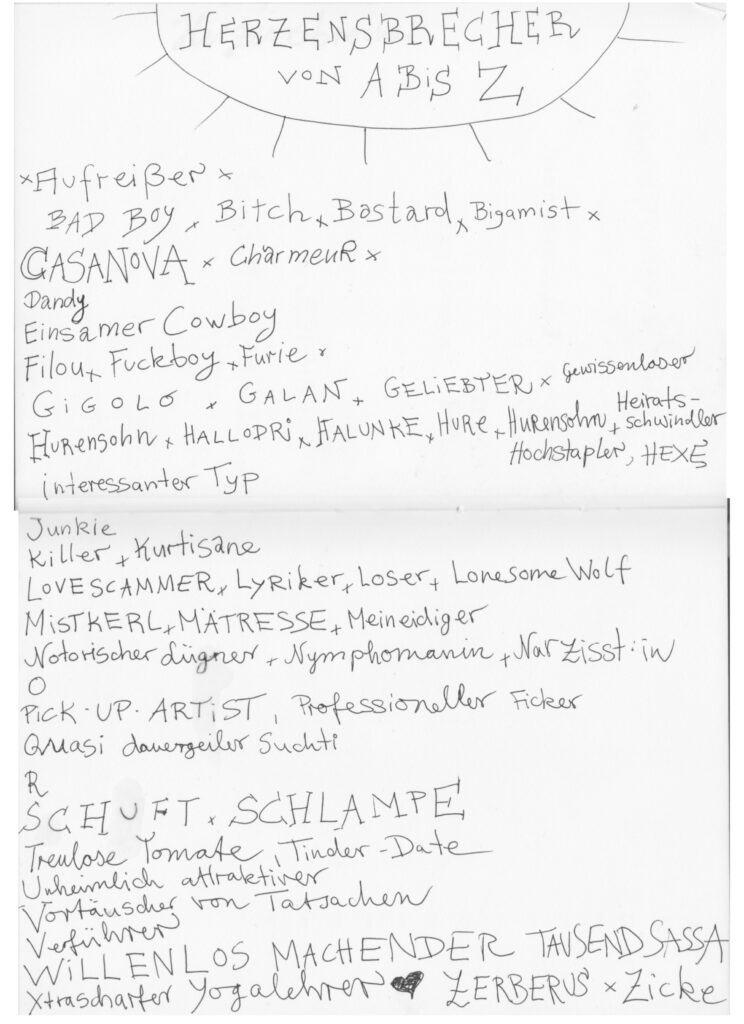 HERZENSBRECHER
VON A BIS Z
x Aufreißer x
BAD BOY x Bitch x Bastard x Bigamist x
CASANOVA x CharmeuR x
Dandy
Einsamer Cowboy
Filou x Fuckboy x Furie x
GIGOLO x GALAN + GELIEBTER x gewissenloser
Hurensohn x HALLODRI x HALUNKE x HURE x Hurensohn + Heirats-
schwindler
Hochstapler, HEXE
interessanter Typ
Junkie
Killer + Kurtisane
LOVESCAMMER + Lyriker + Loser + Lonesome Wolf
MISTKERL + MÄTRESSE + Meineidiger
Notorischer Lügner + Nymphomanin + Narzisst:in
O
PICK-UP-ARTIST, Professioneller Ficker
Quasi dauergeiler Suchti
R
SCHUFT x SCHLAMPE
Treulose Tomate, Tinder-Date
Unheimlich attraktiver
Vortäuscher von Tatsachen
Verführer
WILLENLOS MACHENDER TAUSENDSASSA
Xtrascharfer Yogalehrer ♥ ZERBERUS x Zicke